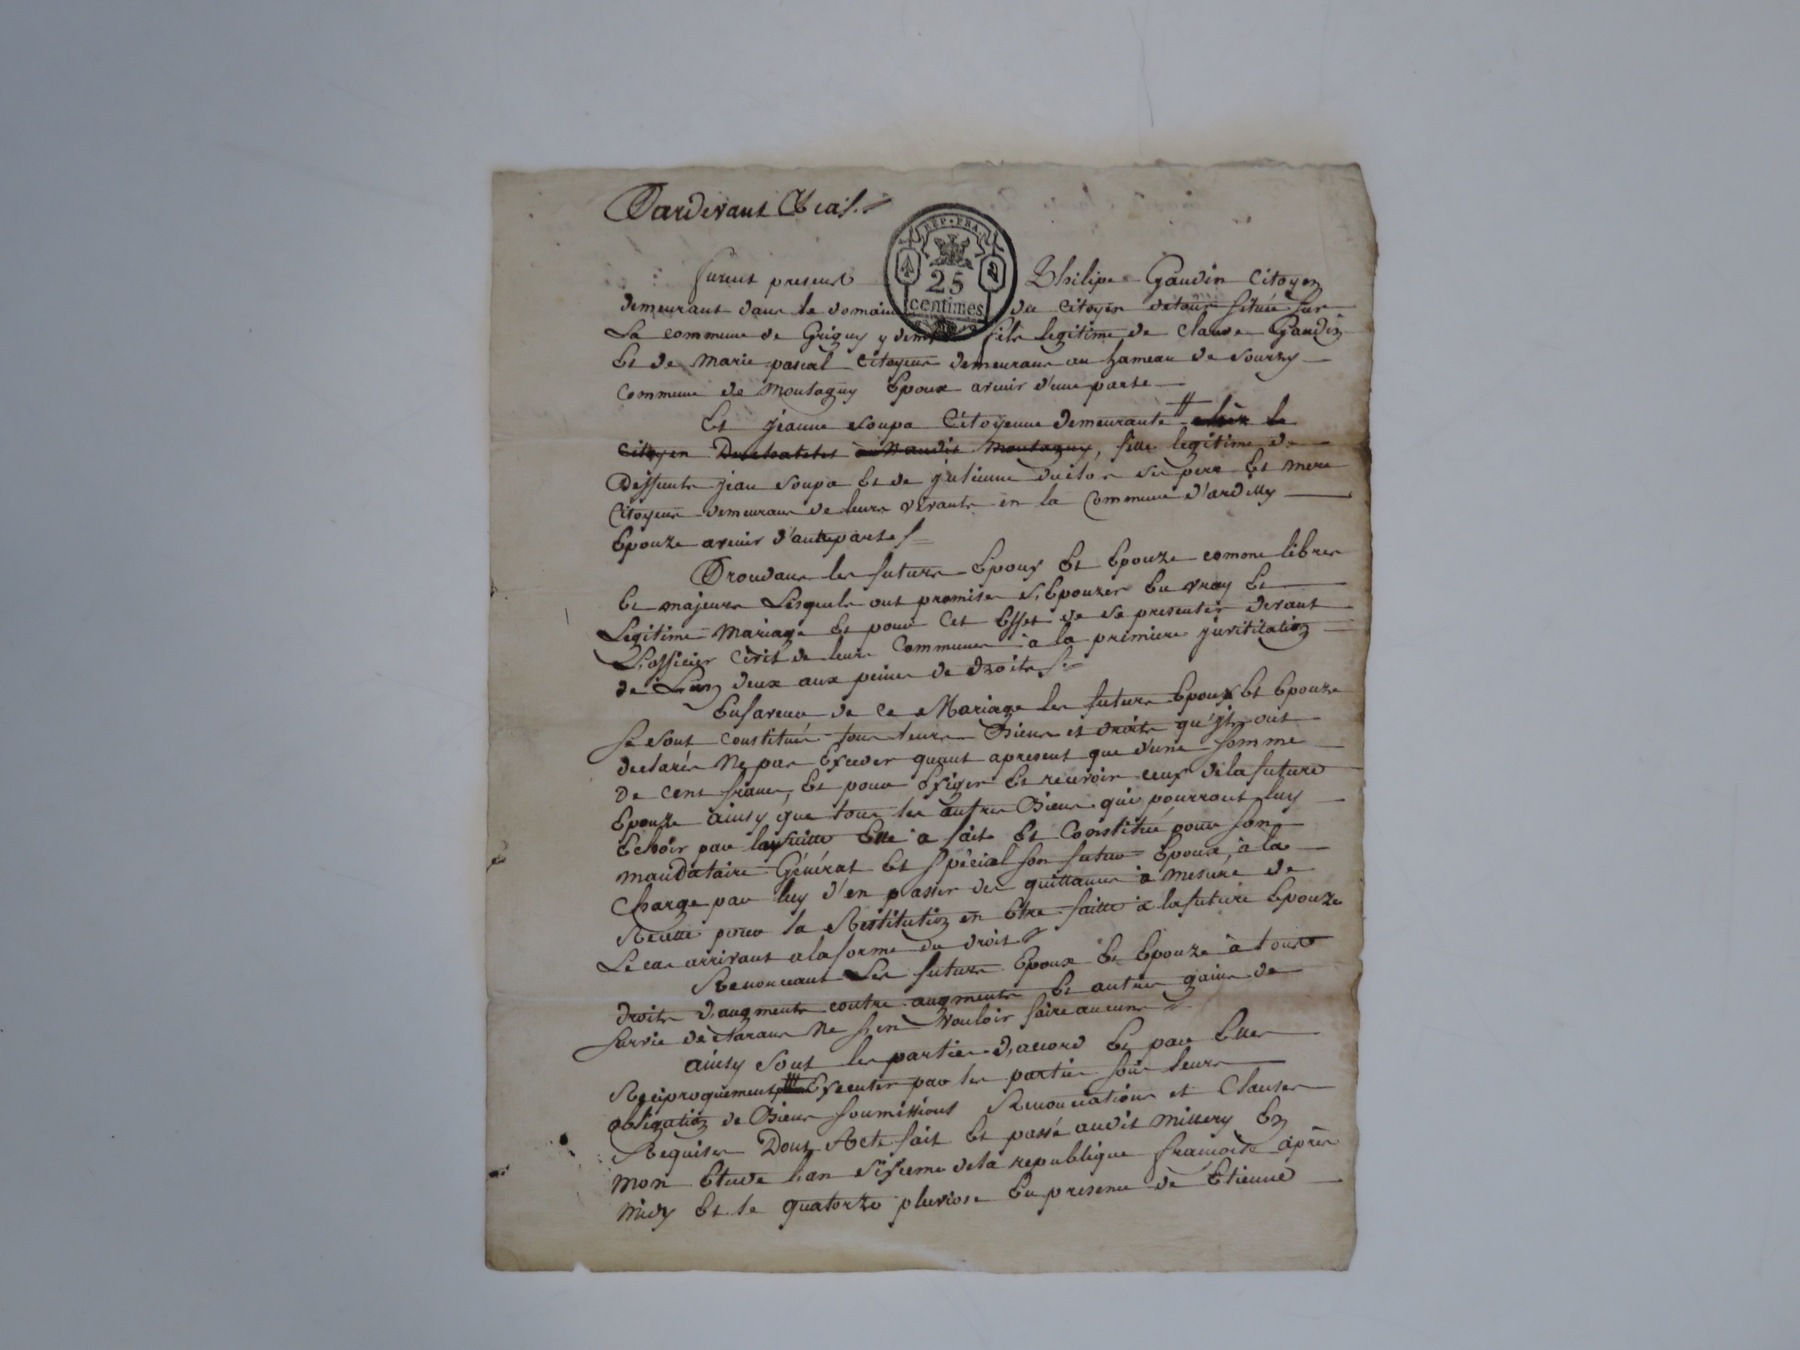 Pardevant &ca/.
REP. FRA.
25
centimes
furent presents Philipe Gaudin Citoyen
demeurant dans le domaine du Citoyen situé sur
La commune de Grigny y fils legitime de Claude Gaudin
Et de Marie pascal Citoyens demeurans au hameau de Sourzy
Commune de Montagny Epoux avenir d'une parte
Et jeanne Soupa Citoyenne demeurante # chèz le
Citoyen audit Montagny, fille legitime de
Deffunts jean Soupa Et de julienne ses pere Et mere
Citoyens demeurans de leurs vivants en la Commune d'ardilly
Epouze avenir d'autreparte/.
Procedans les futurs Epoux Et Epouze comme libres
Et majeurs Lesquels ont promis se S'Epouzer En vray Et
Legitime Mariage Et pour Cet Effet de se presenter devant
L'officier Civil de leurs Communes à la premiere
de L'un deux aux peines de droits/.
En faveur de Ce Mariage les futurs Epoux Et Epouze
se sont constitués tous leurs Biens et droits qu'jls ont
declarés Ne pas Exceder quant apresent que d'une somme
De cent francs, Et pour Exiger Et recevoir ceux de la future
Epouze ainsy que tous les autres Biens qui pourront luy
Echoir par la suitte Elle a fait Et Constitué pour son
mandataire Général Et Spécial son futur Epoux, à la
Charge par luy d'en passer des quittances à mesure de
Recette pour la Restitution en Etre faitte a la future Epouze
Le cas arrivant a la forme du droit/.
Renonceant Les futurs Epoux Et Epouze à tous
droits d'augments contre augments Et autres gains de
survie declarans Ne s'en vouloir faire aucuns/.
ainsy sont les parties d'accord Et par Elles
Reciproquement Executer par les parties sous leurs
obligation de Biens soumissions Renonciations et Clauses
Requises Dont Acte fait Et passé audit Millery En
mon Etude Lan Sixieme de la republique francoise après
midy Et le quatorze pluviose En presence de Etienne